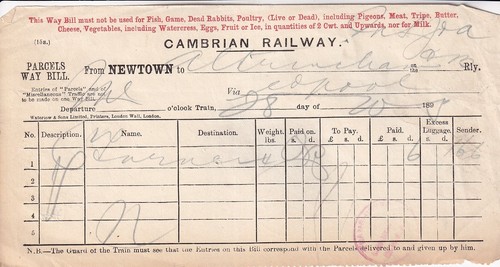 This Way Bill must not be used for Fish, Game, Dead Rabbits, Poultry, (Live or Dead), including Pigeons, Meat, Tripe, Butter,
Cheese, Vegetables, including Watercress, Eggs, Fruit or Ice, in quantities of 2 Cwt. and Upwards, nor for Milk.
CAMBRIAN RAILWAY.
PARCELS WAY BILL.
From NEWTOWN to on the Rly.
Entries of "Parcels" and of "Miscellaneous" Traffic are not to be made on one Way Bill.
Via
Departure o'clock Train, 28 day of 189
Waterlow & Sons Limited, Printers, London Wall, London.
No. Description. Name. Destination. Weight. lbs. Paid on. s. d. To Pay. £ s. d. Paid. £ s. d. Excess Luggage. s. d. Sender.
1 6
2
3
4
5
N.B.—The Guard of the Train must see that the Entries on this Bill correspond with the Parcels delivered to and given up by him.